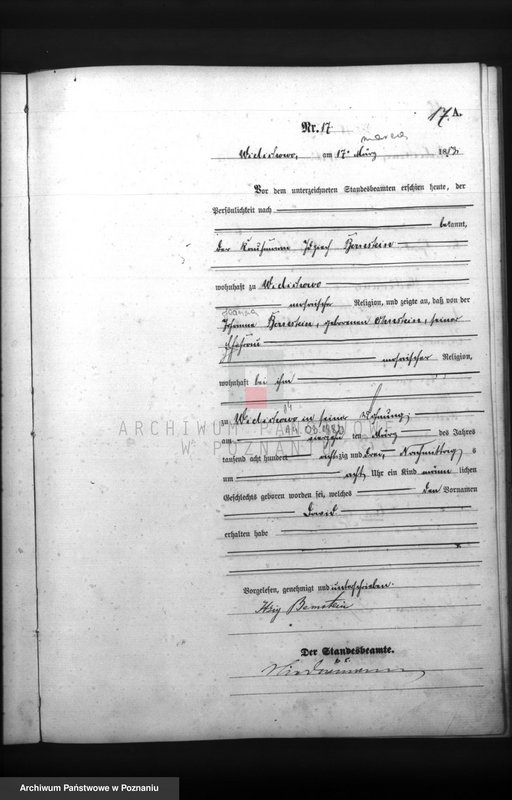 17. A.
Nr. 17
marca
am 17. März 1883.
Vor dem unterzeichneten Standesbeamten erschien heute, der
Persönlichkeit nach
bekannt,
der Kaufmann Bernstein
wohnhaft zu
mosaischer Religion, und zeigte an, daß von der
Joanna
Johanne Bernstein, geborenen seiner
Ehefrau
mosaischer Religion,
wohnhaft bei ihm
zu in seiner Wohnung,
14
am ten März des Jahres
tausend acht hundert achtzig und drei, Nachmittags
um acht Uhr ein Kind männlichen
Geschlechts geboren worden sei, welches den Vornamen
David
erhalten habe
Vorgelesen, genehmigt und unterschrieben.
Bernstein
Der Standesbeamte.
ARCHIWUM PAŃSTWOWE
W POZNANIU
Archiwum Państwowe w Poznaniu